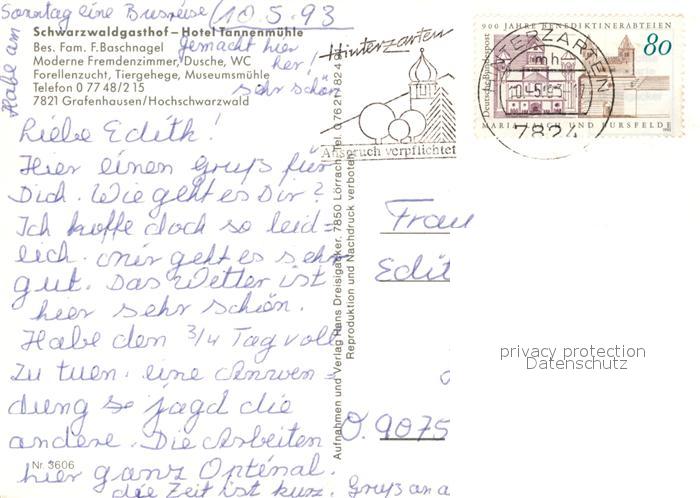 Sonntag eine Busreise (10.5.93
Habe am
gemacht hier
her!
sehr schön
Schwarzwaldgasthof – Hotel Tannenmühle
Bes. Fam. F. Baschnagel
Moderne Fremdenzimmer, Dusche, WC
Forellenzucht, Tiergehege, Museumsmühle
Telefon 0 77 48/2 15
7821 Grafenhausen/Hochschwarzwald
Liebe Edith!
Hier einen Gruß für
Dich. Wie geht es Dir?
Ich hoffe doch so leid=
lich. Mir geht es sehr
gut. Das Wetter ist
hier sehr schön.
Habe den 3/4 Tag voll
zu tuen. eine Anwen=
dung so jagd die
andere. Die Arbeiten
hier ganz Optenal.
die Zeit ist kurz. Gruß an a
Nr. 3606
Aufnahmen und Verlag Hans Dreisigacker, 7850 Lörrach, Tel. 0 76 21/
Reproduktion und Nachdruck verboten
Hinterzarten
Anspruch verpflichtet
HINTERZARTEN
mh
10.-5.93.
7824
900 JAHRE BENEDIKTINERABTEIEN
80
Deutsche Bundespost
MARIA LAACH UND BURSFELDE
Frau
Edit
O. 9075
privacy protection
Datenschutz